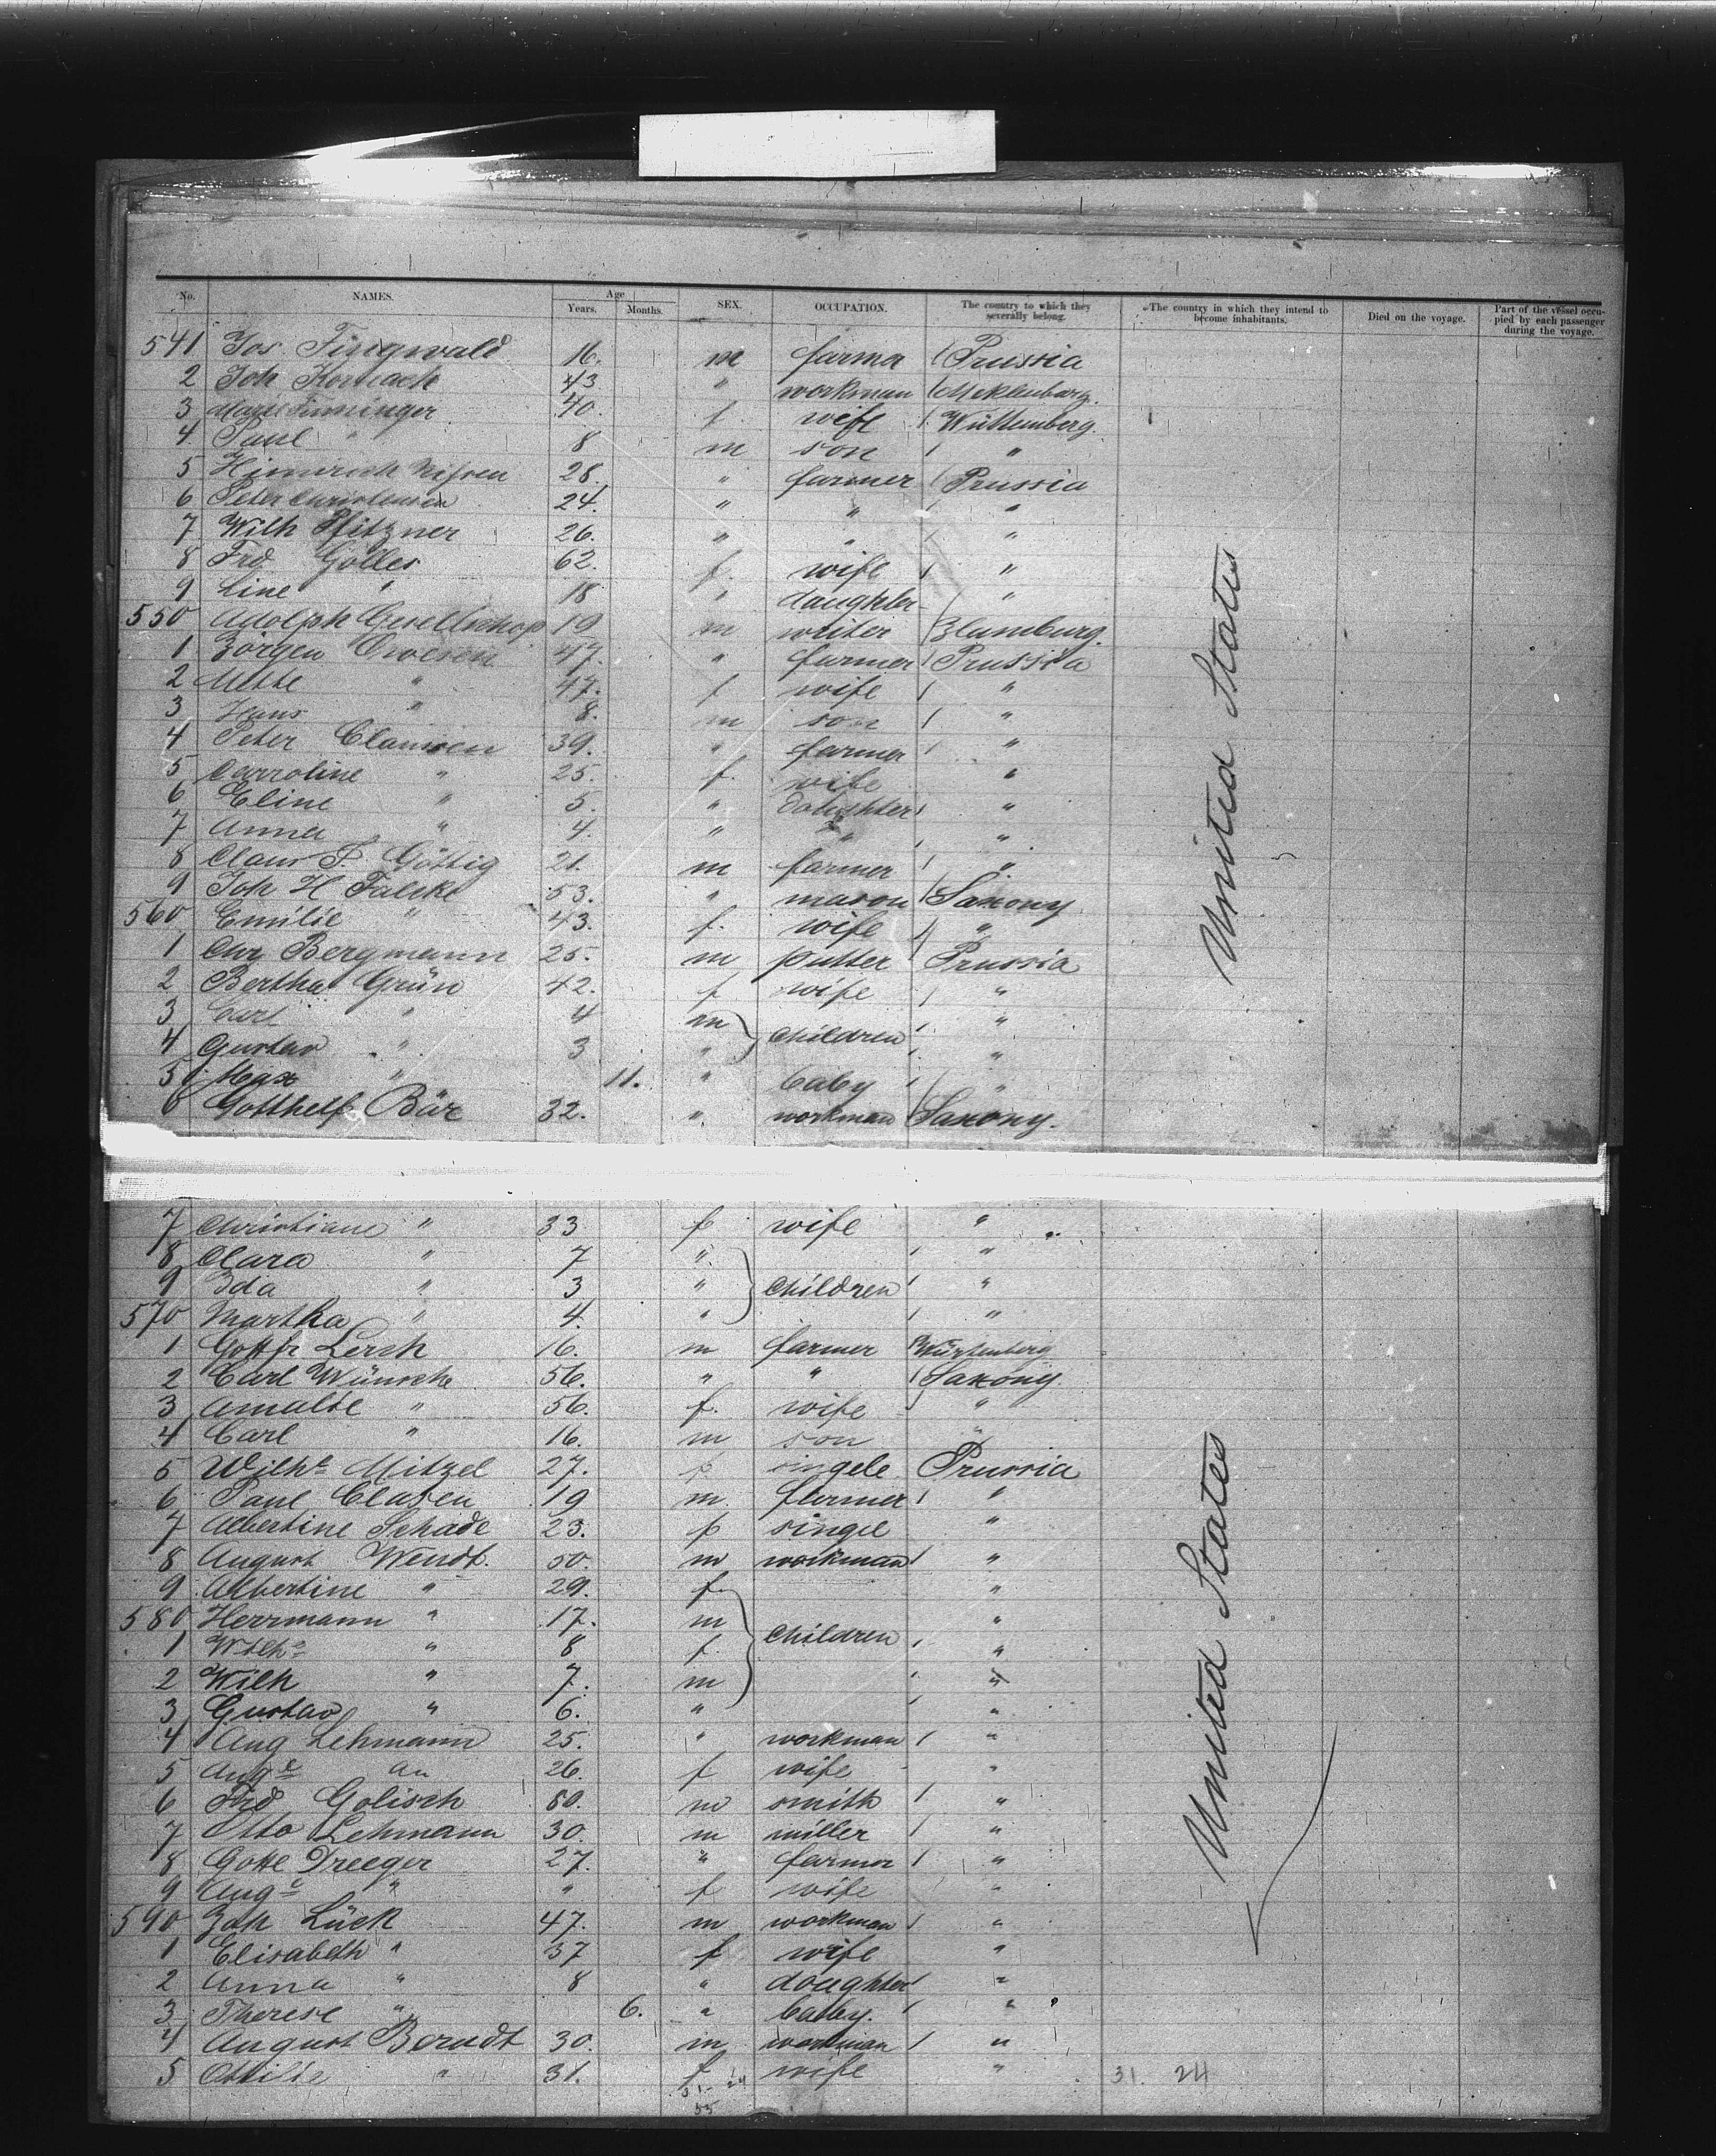 No. NAMES. Age Years. Months. SEX. OCCUPATION. The country to which they severally belong. The country in which they intend to become inhabitants. Died on the voyage. Part of the vessel occupied by each passenger during the voyage.
541 Jos. Fingwald 16. m farmer Prussia
2 Joh 43 " workman Mecklenburg.
3 Marie 40. f. wife Württemberg.
4. Paul " 8 m son "
5 Hinnrich 28. " farmer Prussia
6 Peter Christensen 24. " " "
7 Wilh Pfitzner 26. " " "
8 Frd Golles 62. f. wife "
9 Line " 18 " daughter "
550 Adolph Gesellschop 19 m writer Hamburg.
1 Jörgen 47. " farmer Prussia
2 Mette " 47. f wife "
3 Hans " 8. m son "
4 Peter Clausen 39. " farmer "
5 Carroline " 25. f. wife "
6 Eline " 5. " daughter "
7 Anna " 4. " " "
8 Claus F. Göttig 21. m farmer "
9 Joh H Falcke 53. " mason Saxony
560 Emilie " 43. f. wife "
1 Chr Bergmann 25. m putter Prussia
2 Bertha Grün 42. f wife "
3 Carl " 4 m children "
4 Gustav " 3 " "
5 Max " 11. " baby "
6 Gotthelf Bär 32. " workman Saxony.
7 Christiane " 33 f wife "
8 Clara " 7 " "
9 Ida " 3 " children "
570 Martha " 4. " "
1 Gottfr Lersh 16. m farmer Würtenberg
2 Carl Wünsche 56. " " Saxony
3 Amalie " 56. f. wife "
4 Carl " 16. m son "
5 Wilhe Mitzel 27. f singele Prussia
6 Paul Clasen 19 m. farmer "
7 Albertine Schade 23. f singel "
8 August Wendt. 50 m workman "
9 Albertine " 29. f "
580 Herrmann " 17. m "
1 Wilhe " 8 f. children "
2 Wilh " 7. m "
3 Gustav " 6. " "
4 Aug Lehmann 25. " workman "
5 Auge 26. f wife "
6 Frd Golisch 50. m smith "
7 Otto Lehmann 30. m miller "
8 Dreeger 27. " farmer "
9 Auge " " f wife "
590 Joh Lück 47. m workman "
1 Elisabeth " 37 f wife "
2 Anna " 8 " doughter "
3 Therese " 6. " baby. "
4 August Berndt 30. m workman "
5 Ottilie " 31. f wife "
31 24
55
31. 24
United States
United States